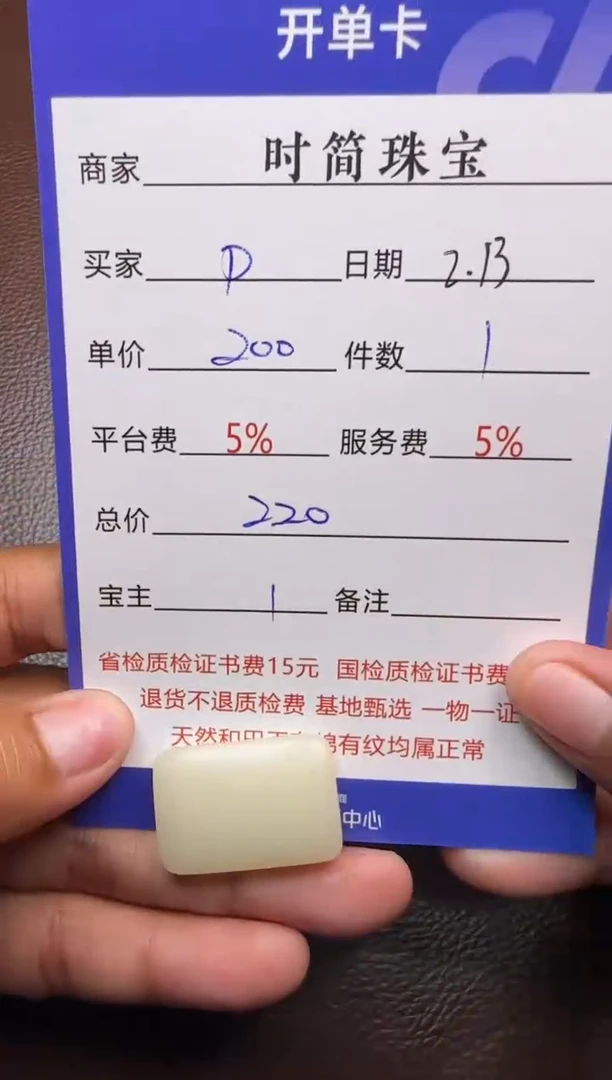 开单卡
商家 时简珠宝
买家 D 日期 2.13
单价 200 件数 1
平台费 5% 服务费 5%
总价 220
宝主 1 备注
省检质检证书费15元 国检质检证书费
退货不退质检费 基地甄选 一物一证
天然和田玉 棉有纹均属正常
中心